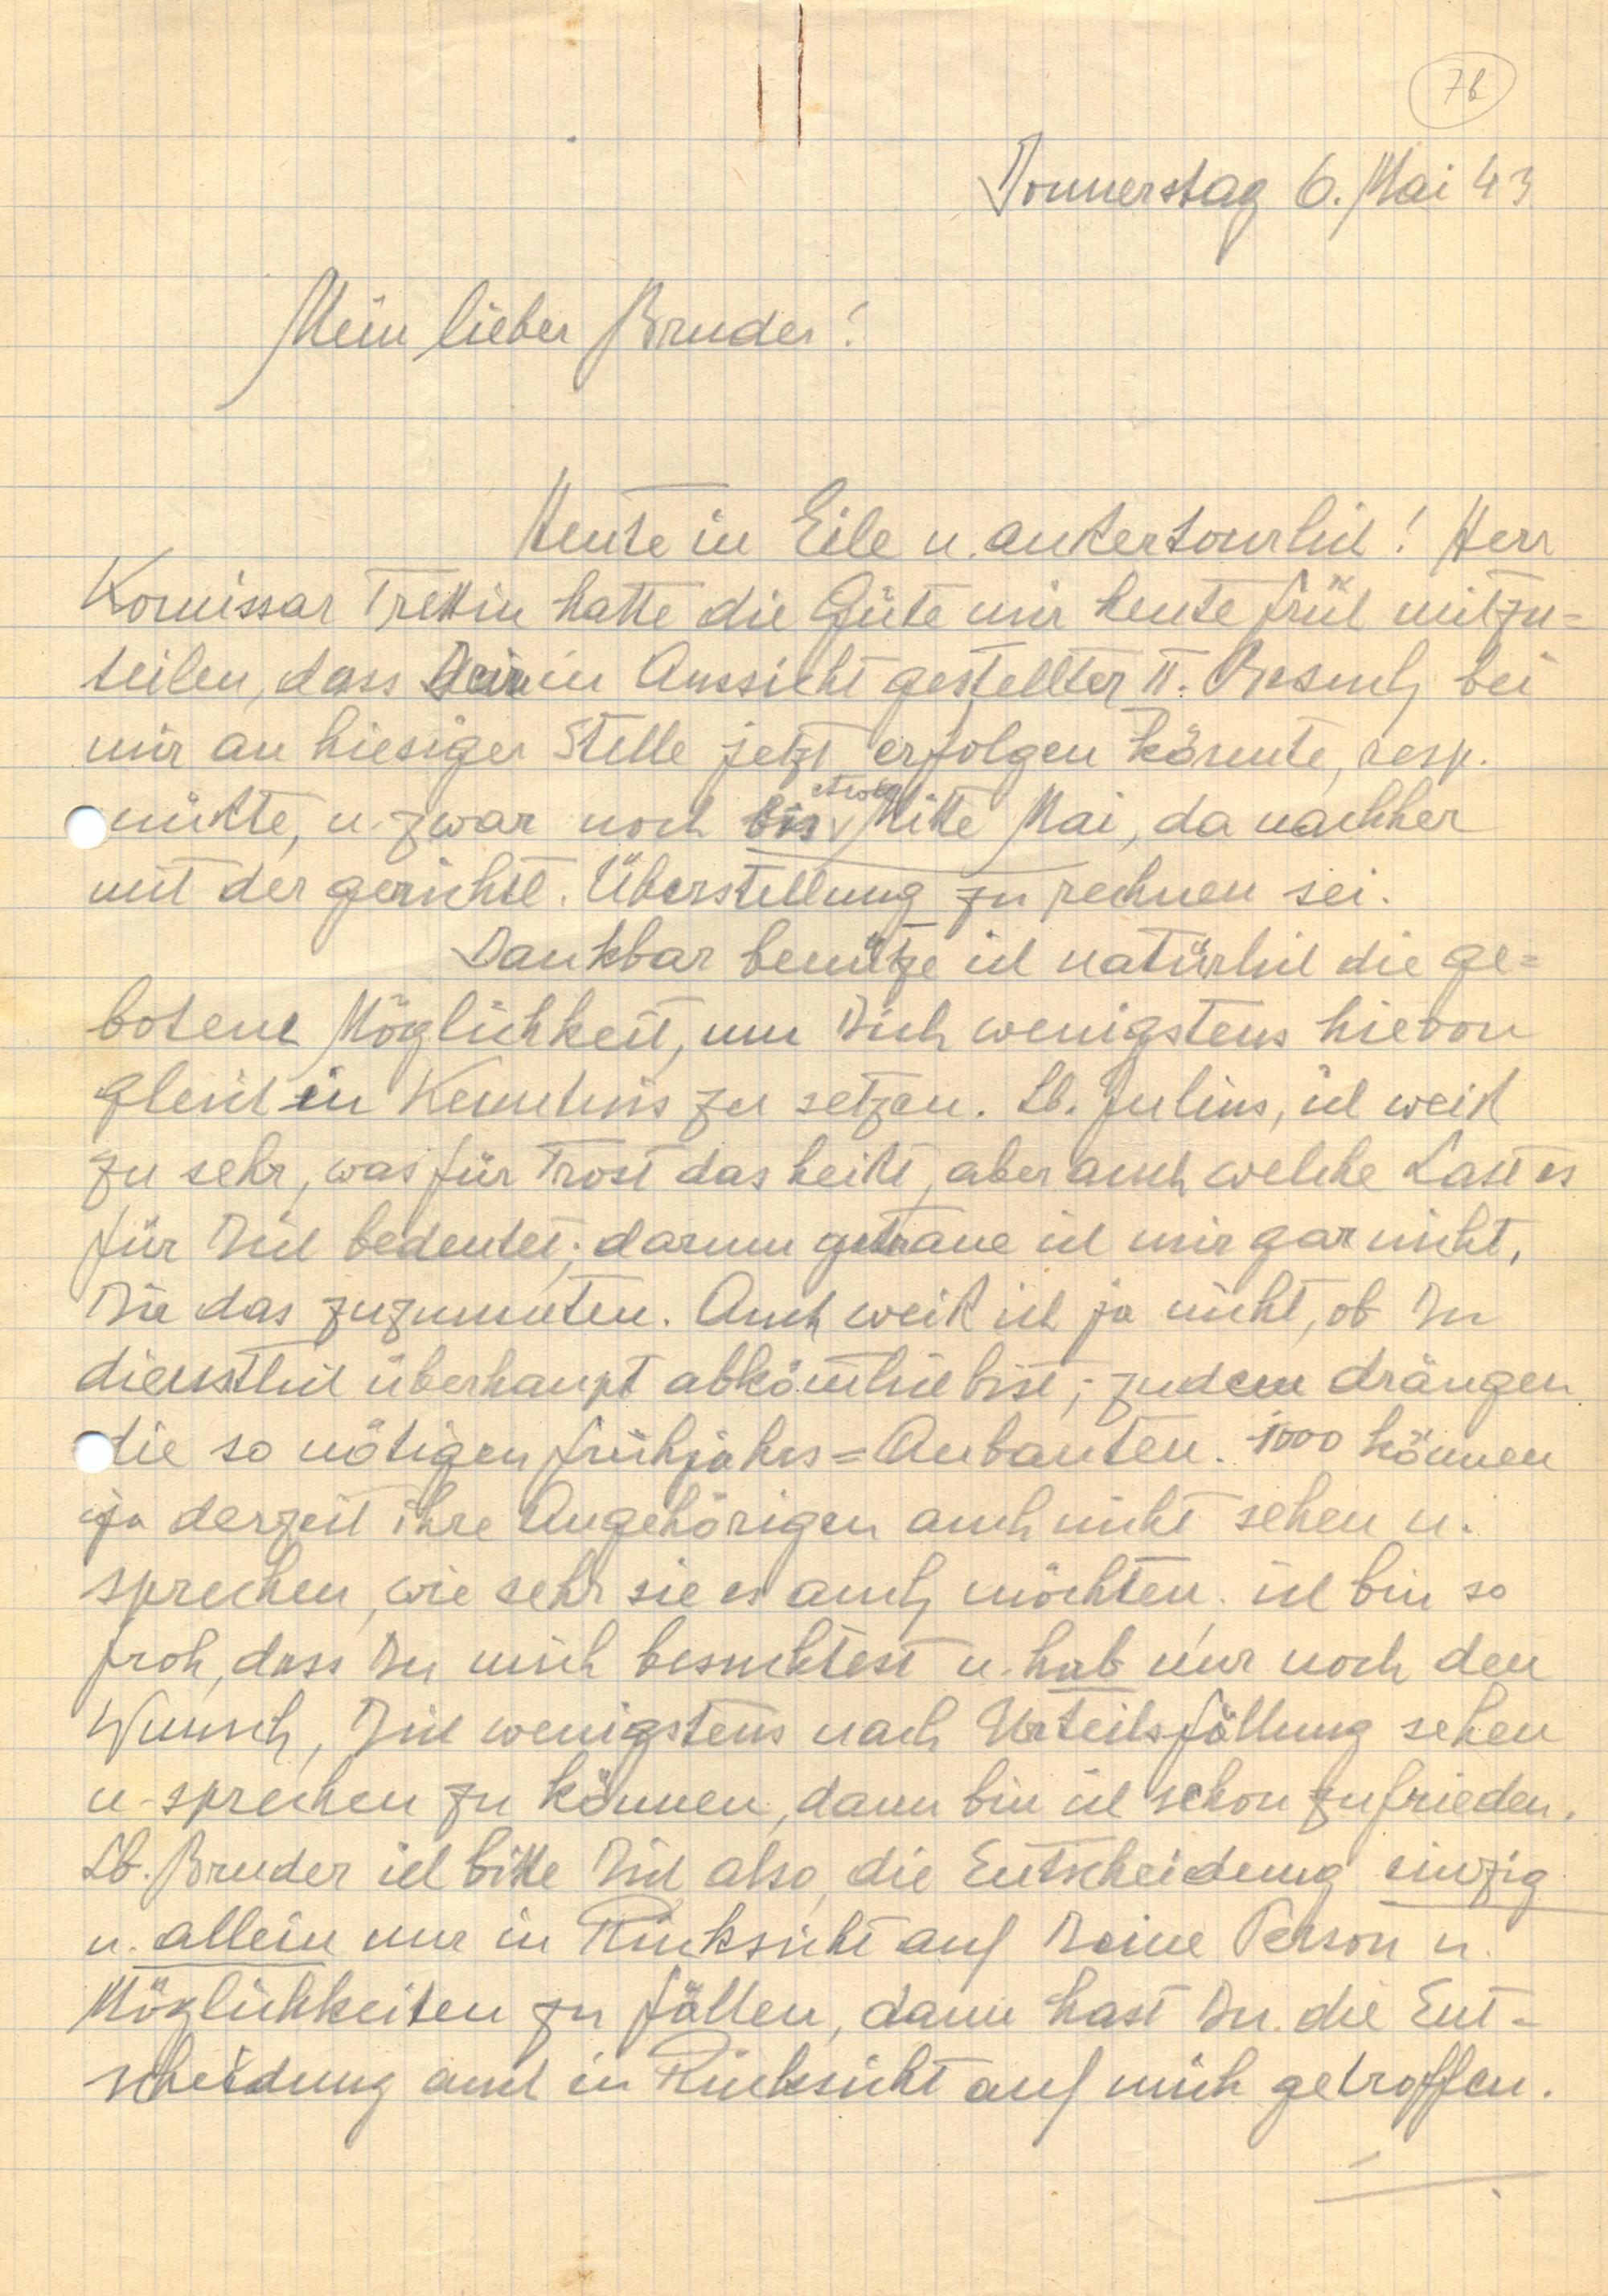 7b
Donnerstag 6. Mai 43
Mein lieber Bruder!
Heute in Eile u. außertourlich! Herr
Komissar Trettin hatte die Güte mir heute früh mitzu=
teilen, dass Dein in Aussicht gestellter II. Besuch bei
mir an hiesiger Stelle jetzt erfolgen könnte, resp.
müßte, u. zwar noch bis etwa Mitte Mai, da nachher
mit der gerichtl. Überstellung zu rechnen sei.
Dankbar benütze ich natürlich die ge=
botene Möglichkeit, um Dich wenigstens hievon
gleich in Kenntnis zu setzen. Lb. Julius, ich weiß
zu sehr, was für Trost das heißt, aber auch welche Last es
für Dich bedeutet; darum getraue ich mir gar nicht,
Dir das zuzumuten. Auch weiß ich ja nicht, ob Du
dienstlich überhaupt abkömlich bist; zudem drängen
die so nötigen Frühjahrs=Anbauten. 1000 können
ja derzeit ihre Angehörigen auch nicht sehen u.
sprechen, wie sehr sie es auch möchten. ich bin so
froh, dass Du mich besuchtest u. hab nur noch den
Wunsch, Dich wenigstens nach Urteilsfällung sehen
u. sprechen zu können, dann bin ich schon zufrieden.
Lb. Bruder ich bitte Dich also, die Entscheidung einzig
u. allein nur in Rücksicht auf Deine Person u.
Möglichkeiten zu fällen, dann hast Du die Ent-
scheidung auch in Rücksicht auf mich getroffen.